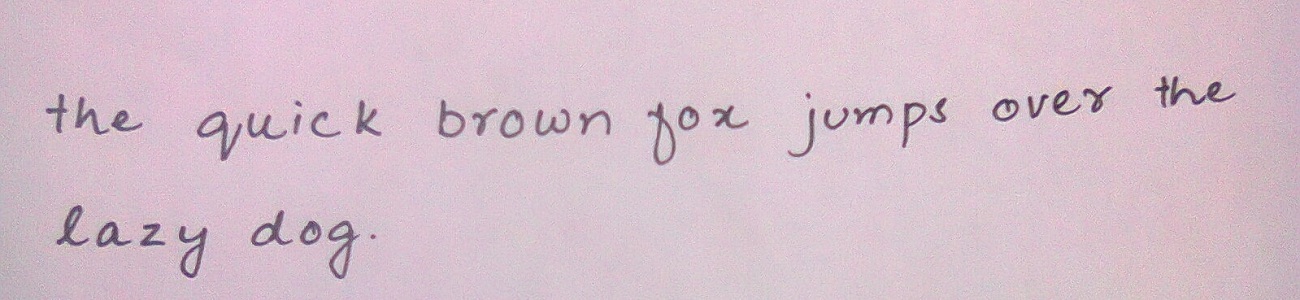 the quick brown fox jumps over the
lazy dog.